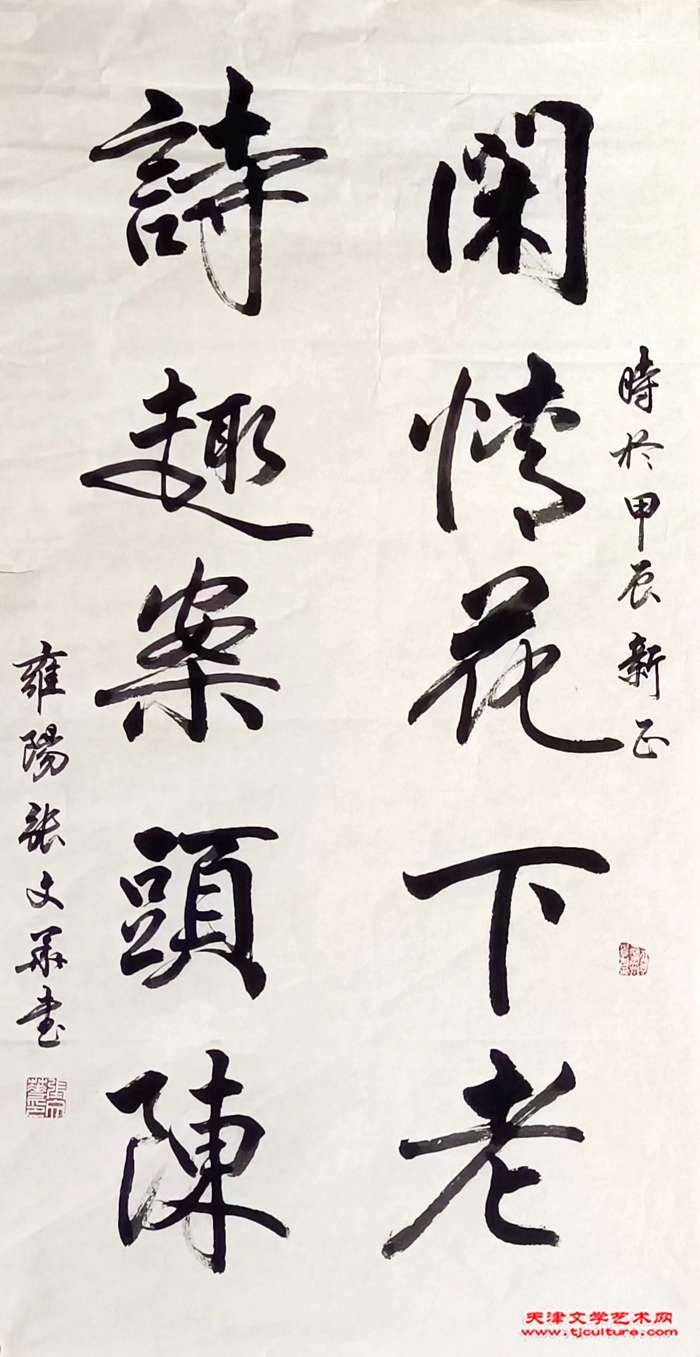 時於甲辰新正
閑情花下老
詩趣案頭陳
雍陽張文華書
天津文学艺术网
www.tjculture.com